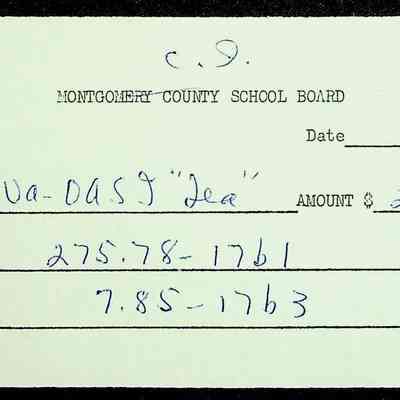 C. I.
MONTGOMERY COUNTY SCHOOL BOARD
Date
Va-OASI "Tea" AMOUNT $ 2
275.78-17b1
7.85-17b3